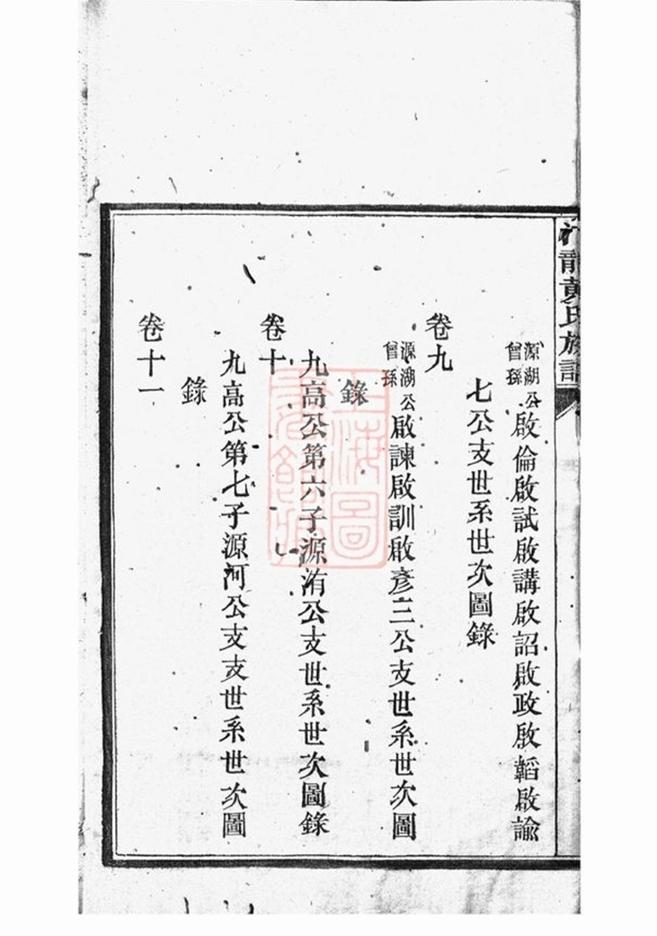 龍黃氏族譜
源湖公曾孫啟倫啟試啟講啟詔啟政啟韜啟諭
七公支世系世次圖錄
卷九
源湖公曾孫啟諫啟訓啟彥三公支世系世次圖
錄
九高公第六子源洧公支世系世次圖錄
卷十
九高公第七子源河公支支世系世次圖
錄
卷十一
上海圖